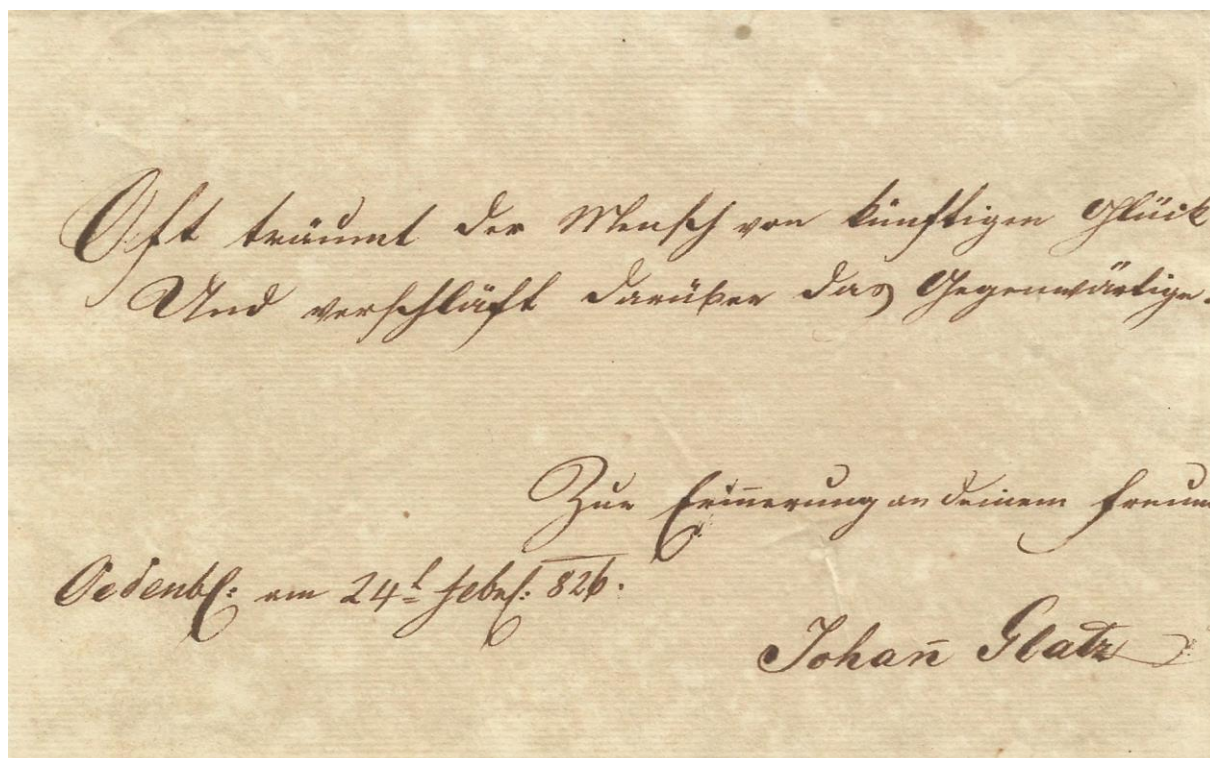 Oft träumt der Mensch von künftigen Glück
Und verschläft darüber das Gegenwärtige.
Zur Erinnerung an deinem Freun
Oedenb: am 24t Febr: 826.
Johan̄ Glatz